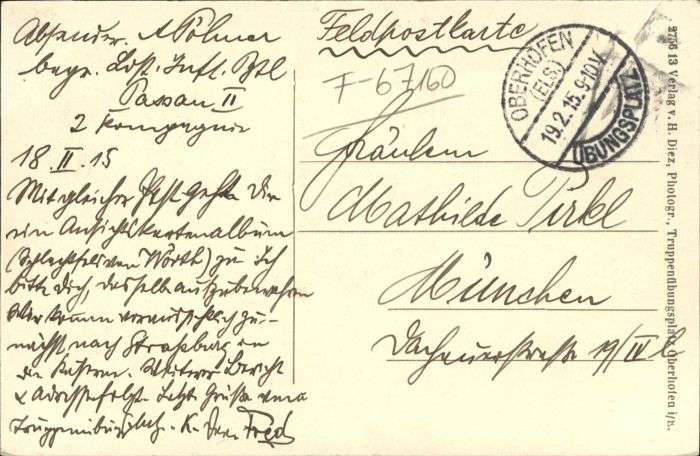 Absender. A Pölmer
begr. Ldst. Inft. Btl
Passau II
2 Kompagnie
18 II. 15
Mit gleicher Post geht Dir
ein Ansichtskartenalbum
(Schlachtfeld von Wörth) zu. Ich
bitte Dich, dasselbe aufzubewahren
Wir kommen voraussichtlich zu-
nächst nach Straßburg in
die Kasern. Weiterer Bericht
& Adresse folgt. Letzte Grüße vom
Truppenübungspl. Fred
Feldpostkarte
F-67160
OBERHOFEN
(ELS.)
19.2.15.9-10V.
ÜBUNGSPLATZ
Fräulein
Mathilde Pirkl
München
Dachauerstrasse 19/IV
2756 13 Verlag v. H. Diez, Photogr., Truppenübungsplatz Oberhofen i/E.